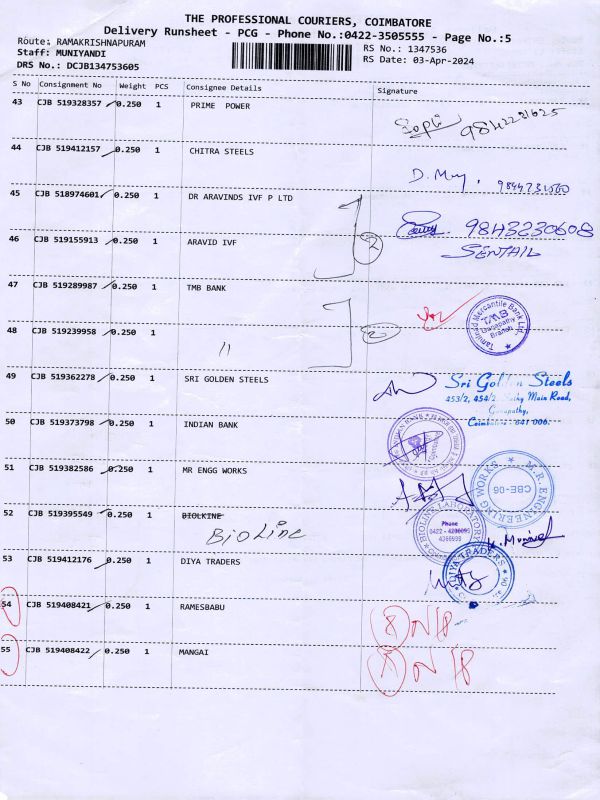 THE PROFESSIONAL COURIERS, COIMBATORE
Delivery Runsheet - PCG - Phone No.:0422-3505555 - Page No.:5
Route: RAMAKRISHNAPURAM
RS No.: 1347536
Staff: MUNIYANDI
RS Date: 03-Apr-2024
DRS No.: DCJB134753605
S No Consignment No Weight PCS Consignee Details Signature
43 CJB 519328357 0.250 1 PRIME POWER
44 CJB 519412157 0.250 1 CHITRA STEELS
D.
45 CJB 518974601 0.250 1 DR ARAVINDS IVF P LTD
2 9843230608
46 CJB 519155913 0.250 1 ARAVID IVF
47 CJB 519289987 0.250 1 TMB BANK
Tamilnad Mercantile Bank Ltd. TMB Ganapathy Branch
48 CJB 519239958 0.250 11 2
49 CJB 519362278 0.250 1 SRI GOLDEN STEELS
Sri Golden Steels
453/2, 454/2, Main Road,
Ganapathy,
Coimbatore - 641 006.
50 CJB 519373798 0.250 1 INDIAN BANK
INDIAN BANK
51 CJB 519382586 0.250 1 MR ENGG WORKS
M.R. ENGINEERING WORKS CBE-06
52 CJB 519395549 0.250 1 BIOLKINE
BioLine
BIOLINE LABORATORY
Phone
0422 - 4200099
4366999
53 CJB 519412176 0.250 1 DIYA TRADERS
DIYA TRADERS
54 CJB 519408421 0.250 1 RAMESBABU
55 CJB 519408422 0.250 1 MANGAI